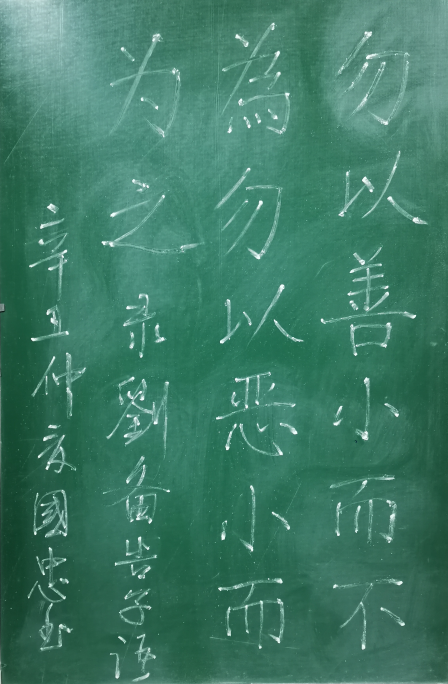 勿以善小而不
為勿以恶小而
为之录劉备告子语
辛丑仲夏國忠书